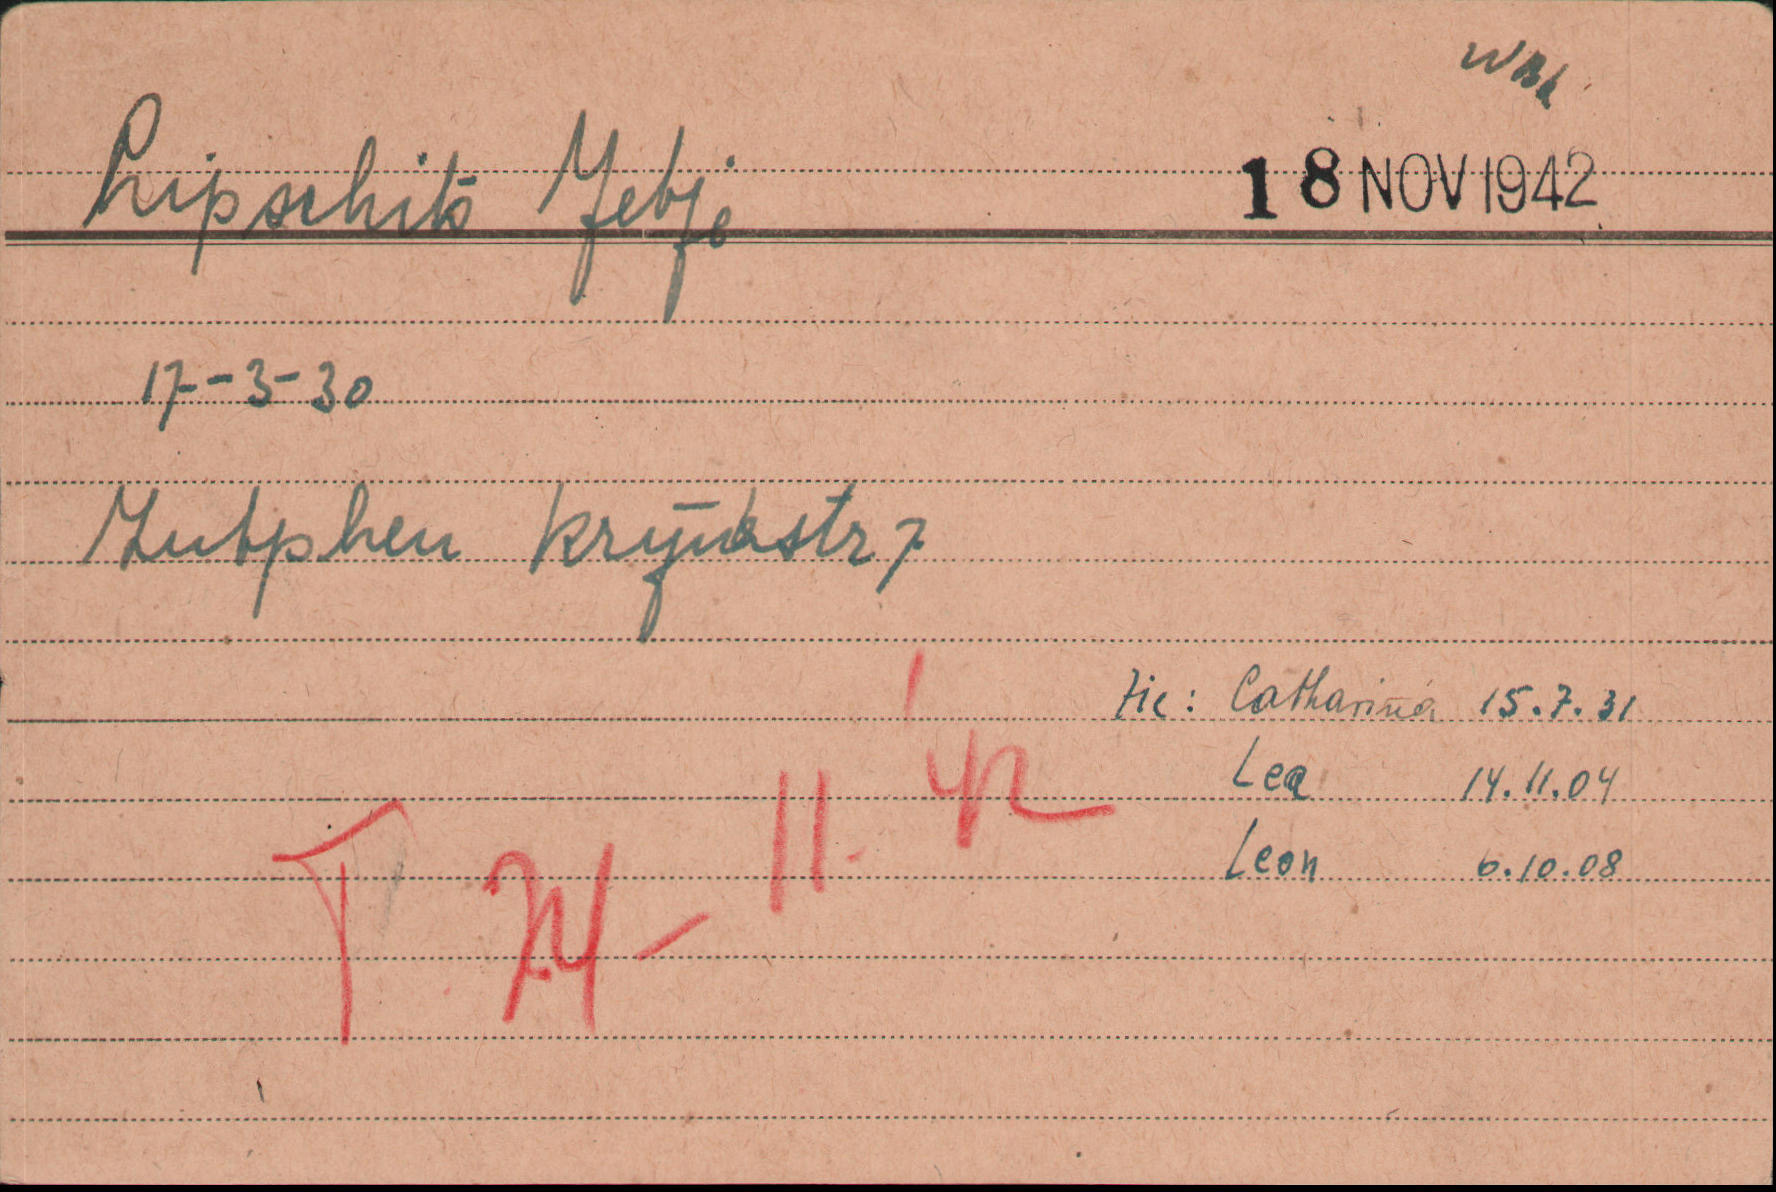 WBK
Lipschits Jetje 18 NOV 1942
17-3-30
Zutphen Krijnkstr 7
Zie: Catharina 15.7.31
Lea 14.11.04
Leon 6.10.08
T 24-11-'42